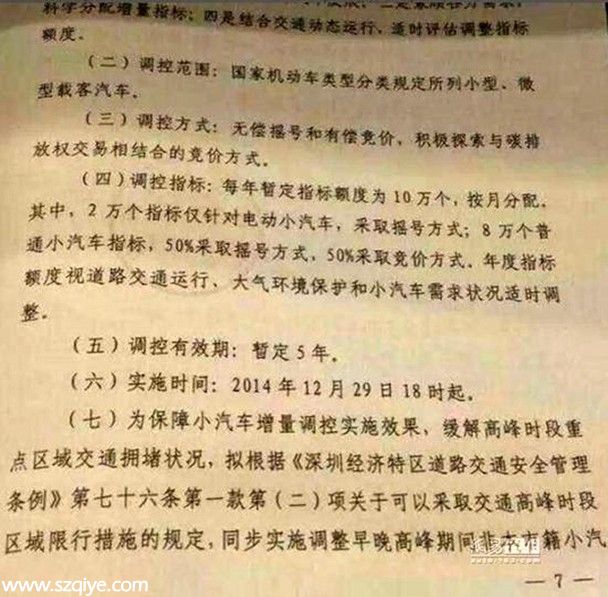 科学分配增量指标；四是结合交通动态运行、适时评估调整指标
额度。
（二）调控范围：国家机动车类型分类规定所列小型、微
型载客汽车。
（三）调控方式：无偿摇号和有偿竞价，积极探索与碳排
放权交易相结合的竞价方式。
（四）调控指标：每年暂定指标额度为 10 万个，按月分配。
其中，2 万个指标仅针对电动小汽车，采取摇号方式；8 万个普
通小汽车指标，50%采取摇号方式，50%采取竞价方式。年度指标
额度视道路交通运行、大气环境保护和小汽车需求状况适时调
整。
（五）调控有效期：暂定 5 年。
（六）实施时间：2014 年 12 月 29 日 18 时起。
（七）为保障小汽车增量调控实施效果，缓解高峰时段重
点区域交通拥堵状况，拟根据《深圳经济特区道路交通安全管理
条例》第七十六条第一款第（二）项关于可以采取交通高峰时段
区域限行措施的规定，同步实施调整早晚高峰期间非本市籍小汽
— 7 —
www.szqiye.com